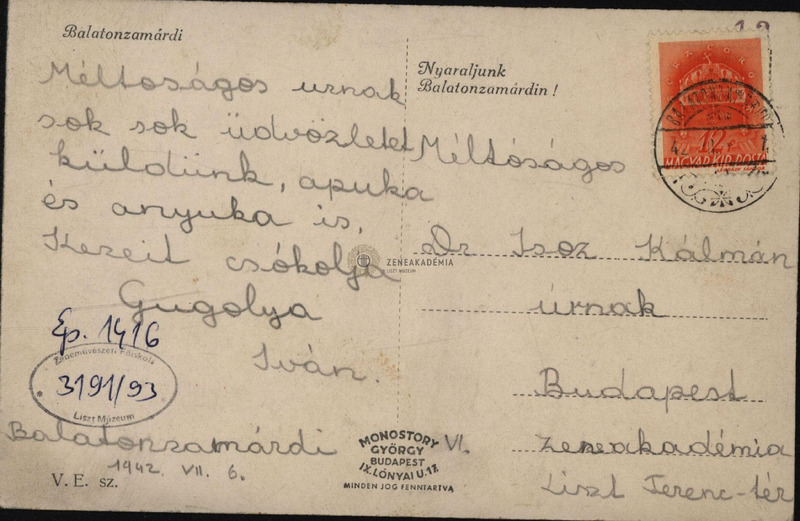 Balatonzamárdi
Méltoságos urnak
sok sok üdvözletet
küldünk, apuka
és anyuka is.
Kezeit csókolja
Gugolya
Iván.
Ep. 1416
Zeneművészeti Főiskola
3191/93
Liszt Múzeum
Balatonzamárdi
1942. VII. 6.
V. E. sz.
Nyaraljunk
Balatonzamárdin !
12
MAGYAR KIR. POSTA
Méltóságos
Dr Isoz Kálmán
úrnak
Budapest
VI. zeneakadémia
Liszt Ferenc-tér
ZENEAKADÉMIA
LISZT MÚZEUM
MONOSTORY
GYÖRGY
BUDAPEST
IX. LÓNYAI U. 17
MINDEN JOG FENNTARTVA